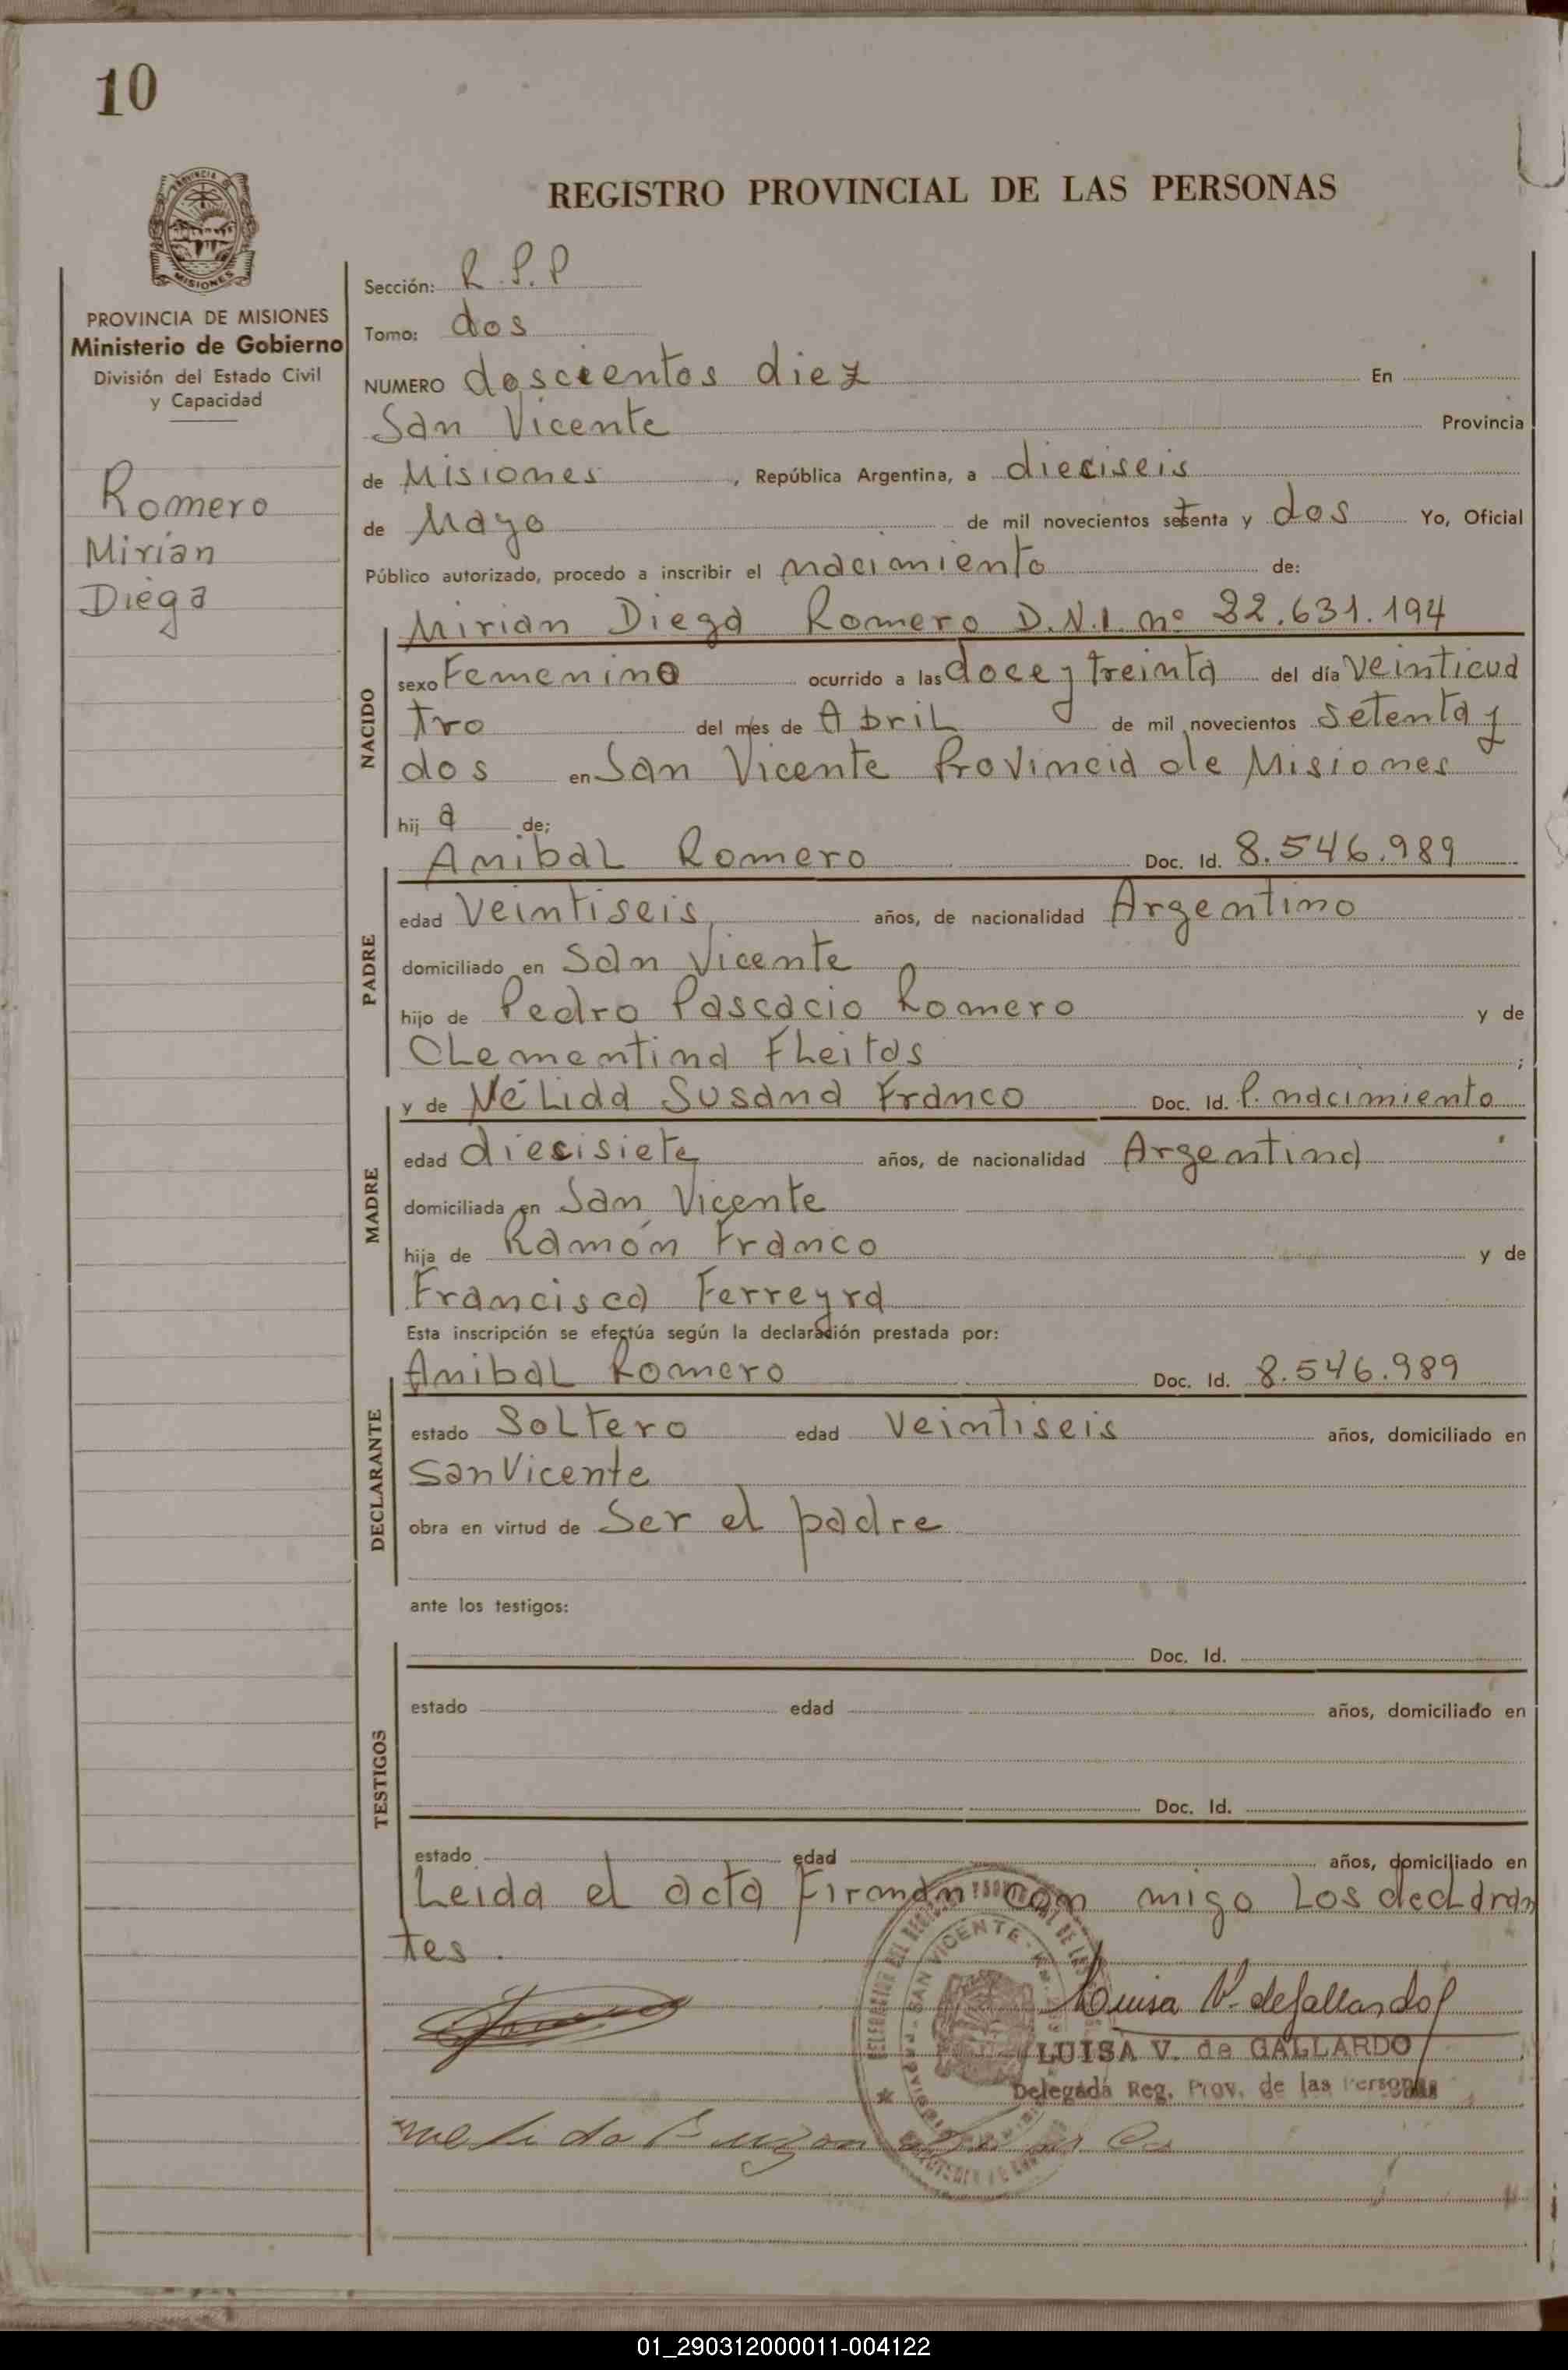 10
REGISTRO PROVINCIAL DE LAS PERSONAS
PROVINCIA DE MISIONES
Ministerio de Gobierno
División del Estado Civil
y Capacidad
Romero
Mirian
Diega
Sección: R.P.P
Tomo: dos
NUMERO doscientos diez En
San Vicente Provincia
de Misiones, República Argentina, a dieciseis
de Mayo de mil novecientos setenta y dos Yo, Oficial
Público autorizado, procedo a inscribir el nacimiento de:
NACIDO
Mirian Diega Romero D.N.I. nº 22.631.194
sexo Femenino ocurrido a las doce y treinta del día veinticua
tro del mes de Abril de mil novecientos setenta y
dos en San Vicente Provincia de Misiones
hija de;
PADRE
Anibal Romero Doc. Id. 8.546.989
edad veintiseis, años, de nacionalidad Argentino
domiciliado en San Vicente
hijo de Pedro Pascacio Romero y de
Clementina Fleitas ;
MADRE
y de Nélida Susana Franco Doc. Id. P. nacimiento
edad diecisiete años, de nacionalidad Argentina
domiciliada en San Vicente
hija de Ramón Franco y de
Francisca Ferreyra
Esta inscripción se efectúa según la declaración prestada por:
DECLARANTE
Anibal Romero Doc. Id. 8.546.989
estado Soltero edad veintiseis años, domiciliado en
San Vicente
obra en virtud de Ser el padre
ante los testigos:
TESTIGOS
Doc. Id.
estado edad años, domiciliado en
Doc. Id.
estado edad años, domiciliado en
Leida el acta Firman con migo Los declaran
tes.
Luisa V. de Gallardo
LUISA V. de GALLARDO
Delegada Reg. Prov. de las Personas
SAN VICENTE
01_290312000011-004122